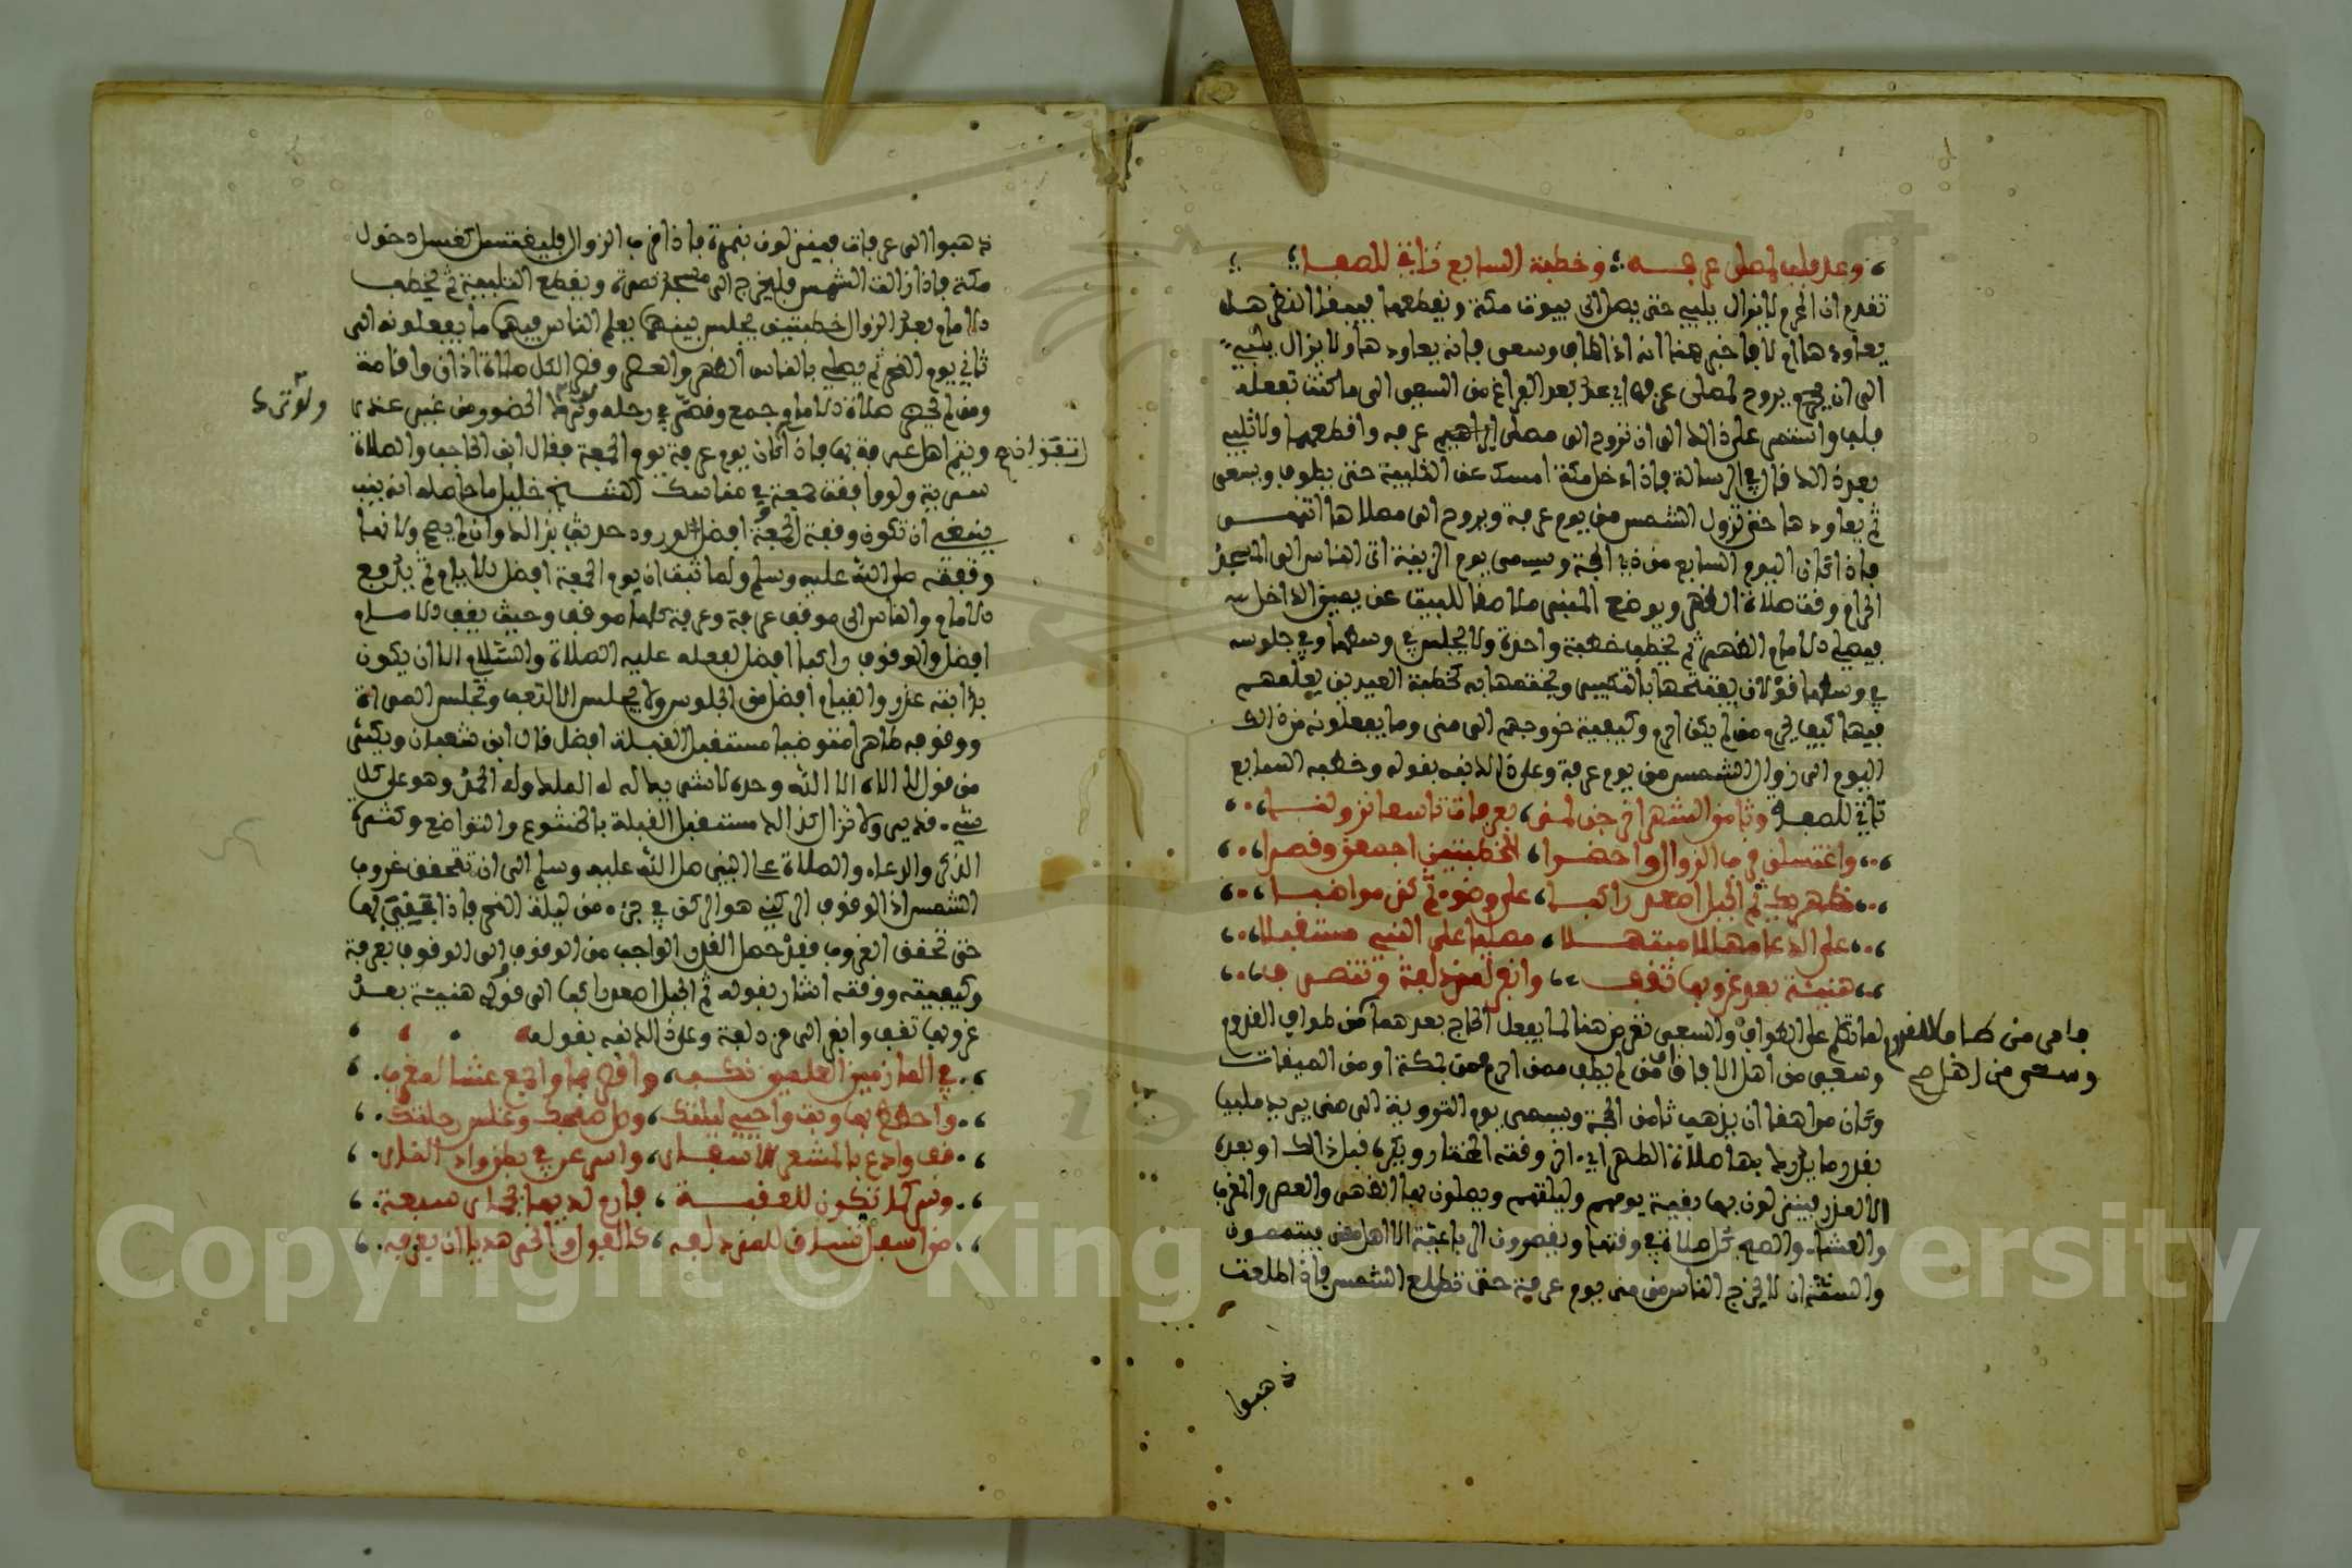 وعد فلب لمصلى عرفه وخطبة السابع تاتي للصفه
تقدم ان المحرم لا يزال يلبي حتى يصل الى بيوت مكة ويقطعها فيبقى النظر هل
يعاودها ام لا فاخبر هنا انه اذا طاف وسعى فانه يعاودها ولا يزال يلبي
الى ان يروح لمصلى عرفه اي عد بعد الفراغ من السعي الى ما كنت تفعله
فلب واستمر على ذالك الى ان تروح الى مصلى ابراهيم عرفه واقطعها ولا تلبي
بعد ذالك قال في الرسالة فاذا دخل مكة امسك عن التلبية حتى يطوف ويسعى
ثم يعاودها حتى تزول الشمس من يوم عرفة ويروح الى مصلاها انتهى
فاذا كان اليوم السابع من ذي الحجة ويسمى يوم الزينة اتى الناس الى المسجد
الحرام وقت صلاة الظهر ويوضع المنبر ملاصقا للبيت عن يمين الداخل
فيصلي الامام الظهر ثم يخطب خطبة واحدة ولا يجلس في وسطها وفي جلوسه
في وسطها قولان يفتتحها بالتكبير ويختمها به كخطبة العيدين يعلمهم
فيها كيف يحرم من لم يكن احرم وكيفية خروجهم الى منى وما يفعلونه من ذالك
اليوم الى زوال الشمس من يوم عرفة وعلى ذالك نبه بقوله وخطبة السابع
تاتي للصفه وثامن الشهر اخرجن لمنى بعرفات تاسعا نزولنا
واغتسلن قرب الزوال واحضرا الخطبتين واجمعن وقصرا
ظهريك ثم الجبل اصعد راكبا على وضوء ثم كن مواظبا
على الدعا مهللا مبتهلا مصليا على النبي مستقبلا
هنيئة بعد غروبها تقف وانفر لمزدلفة وتنصرف
لما تكلم على الطواف والسعي تعرض هنا لما يفعل الحاج بعدهما من طواف القدوم
فا من طاف للقدوم
وسعى من اهل الافاق من لم يطف ممن احرم من مكة او من الميقات
وسعى من اهل صح
وكان مراهقا ان يذهب ثامن الحجة ويسمى يوم التروية الى منى يريد ملبيا
بقدر ما يدرك بها صلاة الظهر اي اخر وقته المختار ويكره قبل ذالك او بعده
الا لعذر فينزلون بها بقية يومهم وليلتهم ويصلون بها الظهر والعصر والمغرب
والعشاء والصبح كل صلاة في وقتها ويقصرون الرباعية الا اهل منى فيتمون
والسنة ان لا يخرج الناس من منى يوم عرفة حتى تطلع الشمس فاذا طلعت
ذهبوا
ذهبوا الى عرفات فينزلون بنمرة فاذا قرب الزوال فليغتسل كغسل دخول
مكة فاذا زالت الشمس فليخرج الى مسجد نمرة ويقطع التلبية ثم يخطب
الامام بعد الزوال خطبتين يجلس بينهما يعلم الناس فيهما ما يفعلونه الى
ثاني يوم النحر ثم يصلي بالناس الظهر والعصر وقصر لكل صلاة اذان واقامة
ومن لم يحضر صلاة الامام جمع وقصر في رحله وترك الحضور من غير عذر
ويتم اهل عرفة بها فاذا كان يوم عرفة يوم الجمعة فقال ابن الحاجب والصلاة
سرية ولو وافقت جمعة في مناسك الشيخ خليل ما حاصله انه
ينبغي ان تكون وقفة الجمعة افضل لورود حديث بذالك وان لم يصح ولانها
وقفته صلى الله عليه وسلم ولما ثبت ان يوم الجمعة افضل الايام ثم يدفع
الامام والناس الى موقف عرفة وعرفة كلها موقف وحيث يقف الامام
افضل والوقوف راكبا افضل لفعله عليه الصلاة والسلام الا ان يكون
بدابته عذر والقيام افضل من الجلوس ولا يجلس الا لتعب وتجلس المراة
ووقوفه طاهرا متوضيا مستقبل القبلة افضل قال ابن شعبان ويكثر
من قول لا اله الا الله وحده لا شريك له له الملك وله الحمد وهو على كل
شيء قدير ولا تزال كذالك مستقبل القبلة بالخشوع والتواضع وكثرة
الذكر والدعاء والصلاة على النبي صلى الله عليه وسلم الى ان تتحقق غروب
الشمس اذ الوقوف الركني هو الركن في جزء من ليلة النحر فاذا بقيت بها
حتى تحقق الغروب فقد حصل القدر الواجب من الوقوف الى الوقوف بعرفة
وكيفيته ووقته اشار بقوله ثم الجبل اصعد راكبا الى قوله هنيئة بعد
غروبها تقف وانفر الى مزدلفة وعلى ذالك نبه بقوله
في المازمين العلمين نكب واقصر بها واجمع عشا لمغرب
واحطط بها وبت واحيي ليلتك وصل صبحك وغلس رحلتك
قف وادع بالمشعر للاسفار واسرعن في بطن وادي النار
وسر كما تكون للعقبة فارم لديها بحجار سبعة
من اسفل تساق للمزدلفه كالفول وانحر هديا ان بعرفه